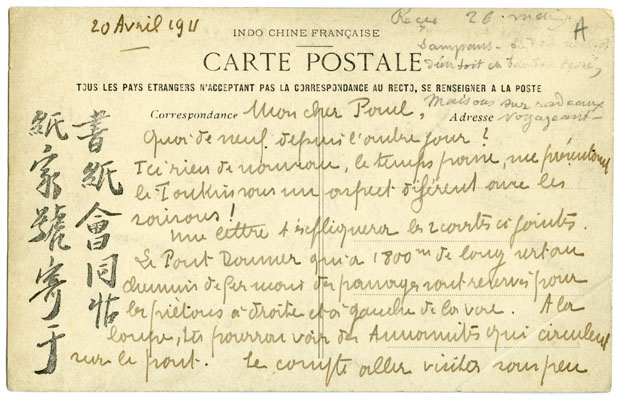 20 Avril 1911
Reçu 26 mai
A
INDO CHINE FRANÇAISE
CARTE POSTALE
TOUS LES PAYS ETRANGERS N'ACCEPTANT PAS LA CORRESPONDANCE AU RECTO, SE RENSEIGNER A LA POSTE
Sampans
Maisons sur radeaux
voyageant
Correspondance
Adresse
Mon cher Paul,
Quoi de neuf depuis l'autre jour ?
Ici rien de nouveau, le temps passe, me
le Tonkin sous un aspect diférent avec les
saisons !
Une lettre t'expliquera les 2 cartes ci jointes.
Le Pont Doumer qui a 1800m de long est au
chemin de fer mais des passages sont reservés pour
les piétons à droite et à gauche de la voie. A la
loupe, tu pourras voir des Annamites qui circulent
sur le pont. Je compte aller visiter sous peu
書紙會同帖
紙家號寄于